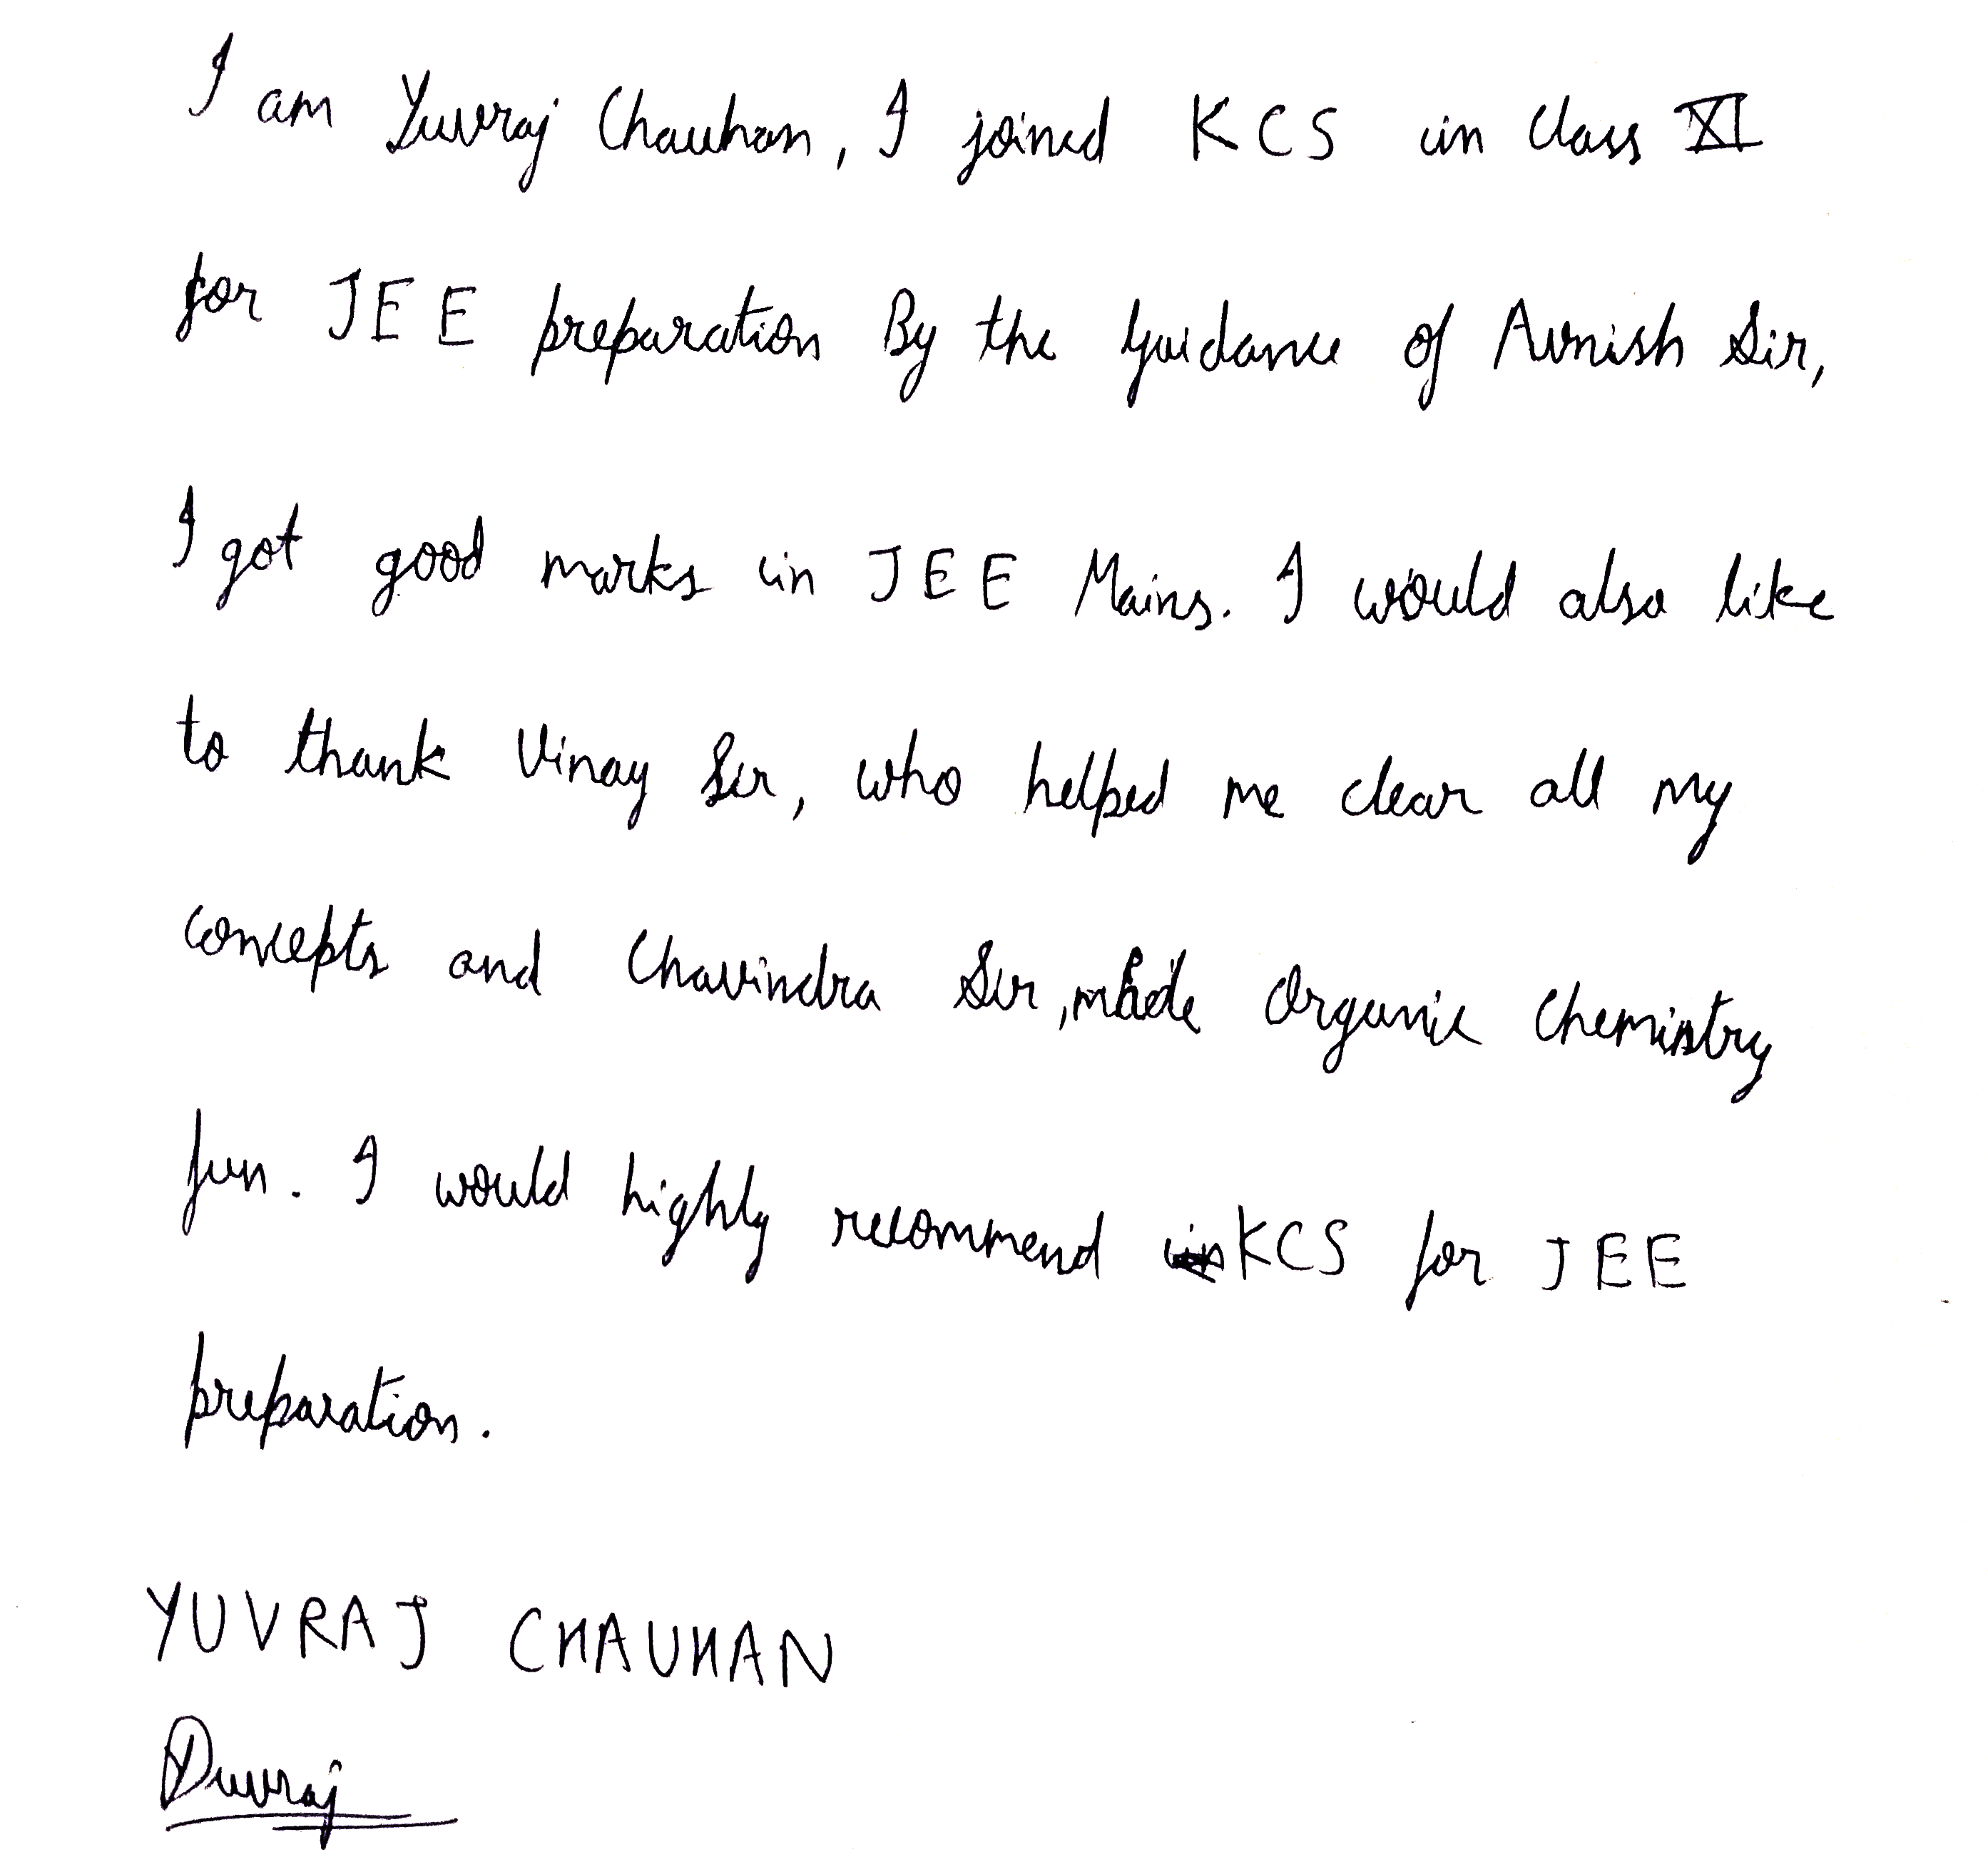 I am Yuvraj Chauhan, I joined KCS in class XI
for JEE preparation By the guidance of Avnish Sir,
I got good marks in JEE Mains. I would also like
to thank Vinay Sir, who helped me clear all my
concepts and Chavindra Sir, made Organic Chemistry
fun. I would highly recommend KCS for JEE
preparation.
YUVRAJ CHAUHAN
Yuvraj